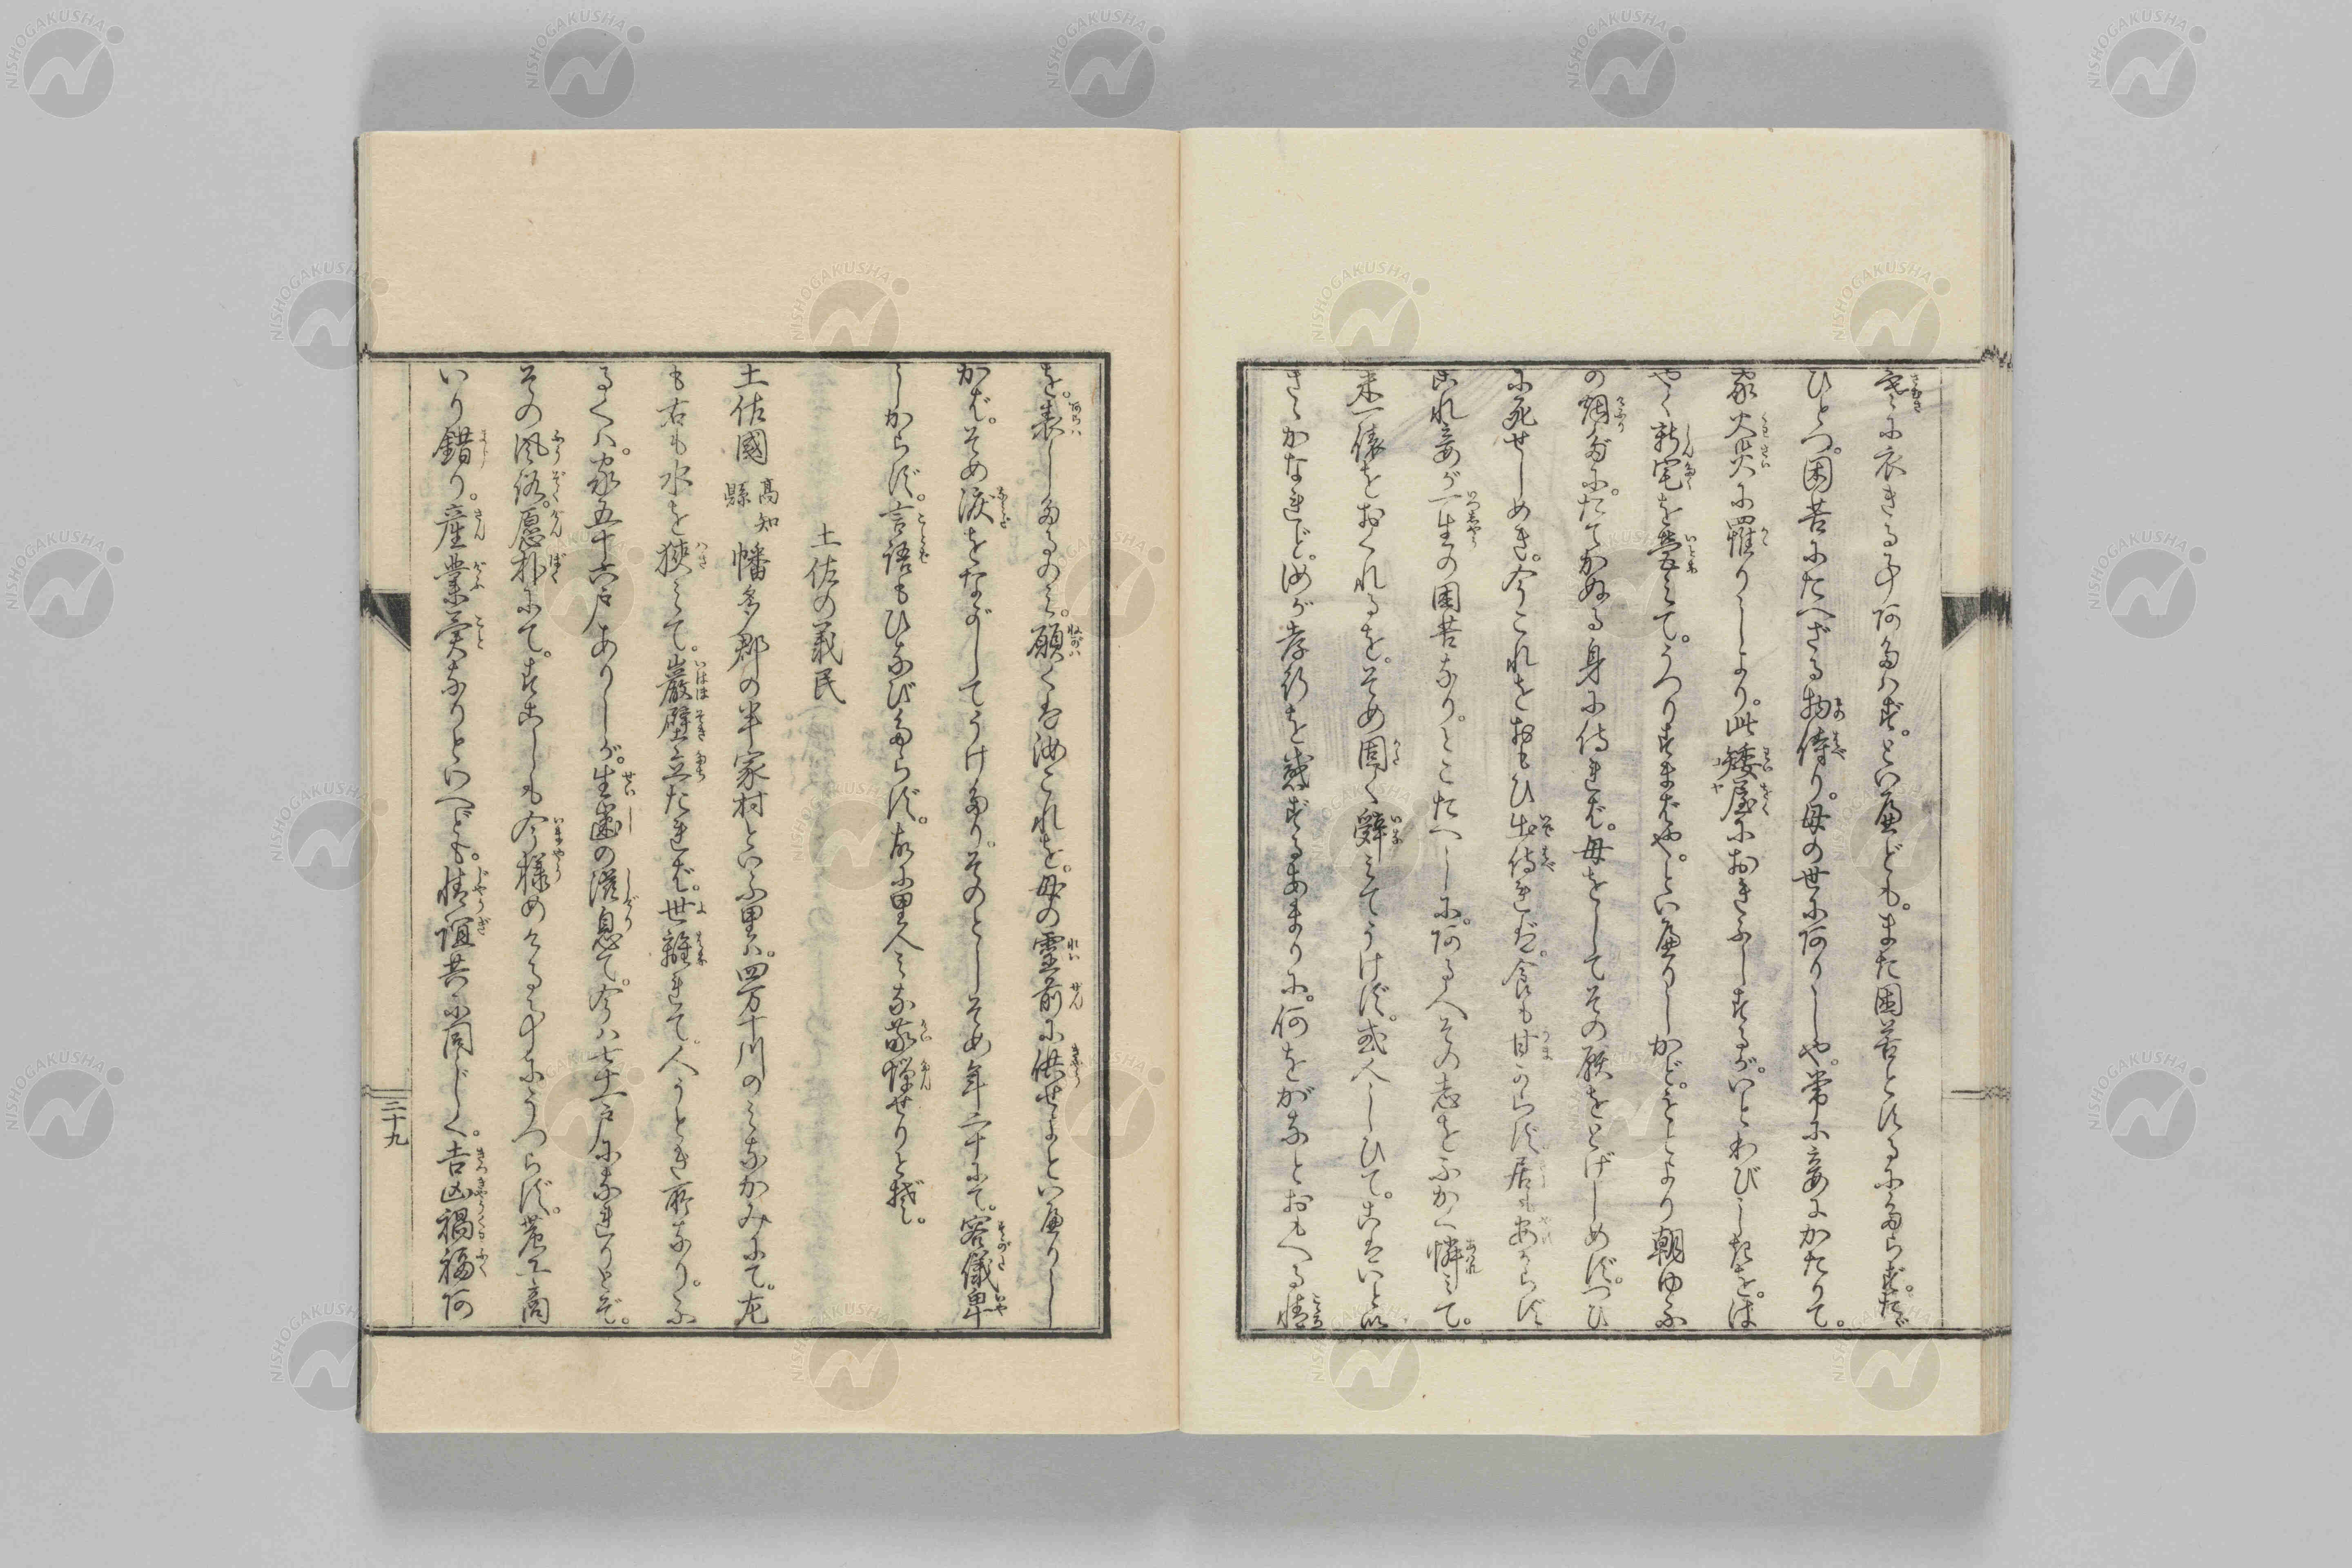 寒きに衣きる事あたはず。といへども。また困苦とするにたらず。たゞ
ひとつ。困苦にたへざる物侍り。母の世にありしや。常に妾にかたりて。
家火災に罹りしより。此矮屋におきふしするが。いとわびしきを。は
やく新宅を営みて。うつりすまばや。といへりしかど。もとより朝ゆふ
の烟だに。たてかぬる身に侍れば。母をしてその願をとげしめず。つひ
に死せしめき。今これをおもひ出侍れば。食も甘からず。居も安からず
これ妾が一生の困苦なり。とこたへしに。ある人その志をふかく憐みて。
米一俵をおくれるを。そめ固く辞みてうけず。或人しひて。こはいとい
さゝかなれど。汝が孝行を感ずるあまりに。何をがなとおもへる情
を。表したるのみ。願くは汝これを。母の霊前に供せよといへりし
かば。そめ涙をながしてうけたり。そのとしそめ年二十にて。容儀卑
しからず。言語もひなびたらず。故に里人みな敬憚せりとぞ。
土佐の義民
土佐國高知縣幡多郡の半家村といふ里は。四万十川のみなかみにて。左
も右も水を狹みて。巖壁立たれば。世離れて。人うとき所なり。ふ
るくは。家五十六戸ありしが。生歯の滋息て。今は七十一戸になれりとぞ。
その風俗。愿朴にて。すこしも今様めける事にうつらず。農工商
いり錯り。産業異なりといへども。情誼共に同じく。吉凶禍福あ
三十九
NISHOGAKUSHA